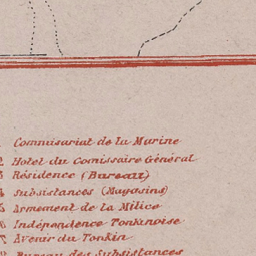 Commisariat de la Marine
2 Hotel du Comissaire Général
3 Résidence (Bureau)
4 Subsistances (Magasins)
5 Armement de la Milice
6 Indépendence Tonkinoise
7 Avenir du Tonkin
8 Bureau des Subsistances